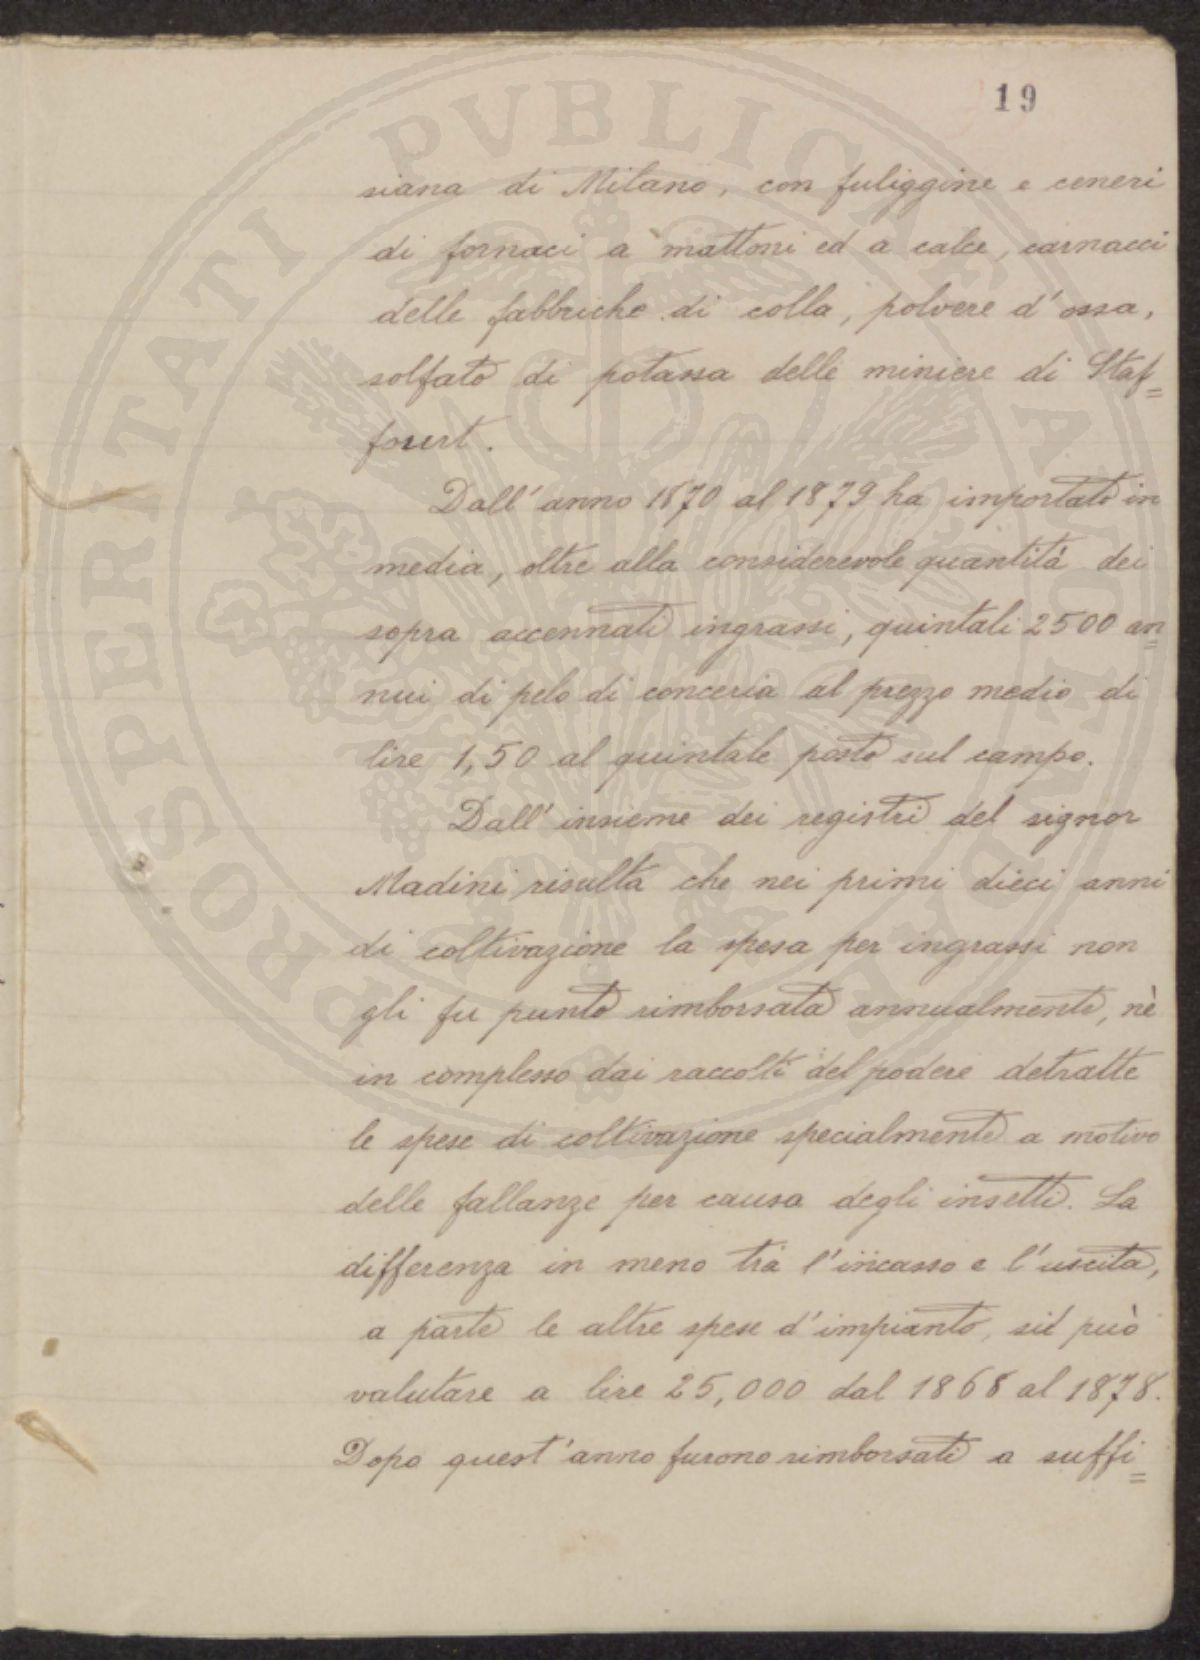 19
siana di Milano, con fuliggine e ceneri
di fornaci a mattoni ed a calce, carnacci
delle fabbriche di colla, polvere d'ossa,
solfato di potassa delle miniere di Staf=
fourt.
Dall'anno 1870 al 1879 ha importato in
media, oltre alla considerevole quantità dei
sopra accennati ingrassi, quintali 2500 an=
nui di pelo di conceria al prezzo medio di
lire 1,50 al quintale posto sul campo.
Dall'insieme dei registri del signor
Madini risulta che nei primi dieci anni
di coltivazione la spesa per ingrassi non
gli fu punto rimborsata annualmente, nè
in complesso dai raccolti del podere detratte
le spese di coltivazione specialmente a motivo
delle fallanze per causa degli insetti. La
differenza in meno tra l'incasso e l'uscita,
a parte le altre spese d'impianto, si può
valutare a lire 25,000 dal 1868 al 1878.
Dopo quest'anno furono rimborsati a suffi=
PROSPERITATI PVBLICAE AVGENDAE